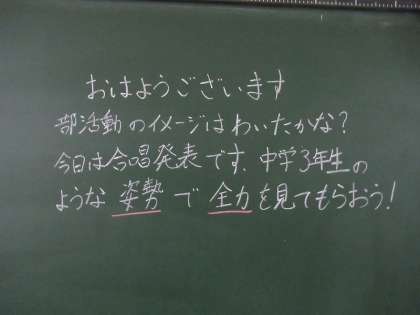 おはようございます
部活動のイメージはわいたかな？
今日は合唱発表です。中学3年生の
ような姿勢で全力を見てもらおう！